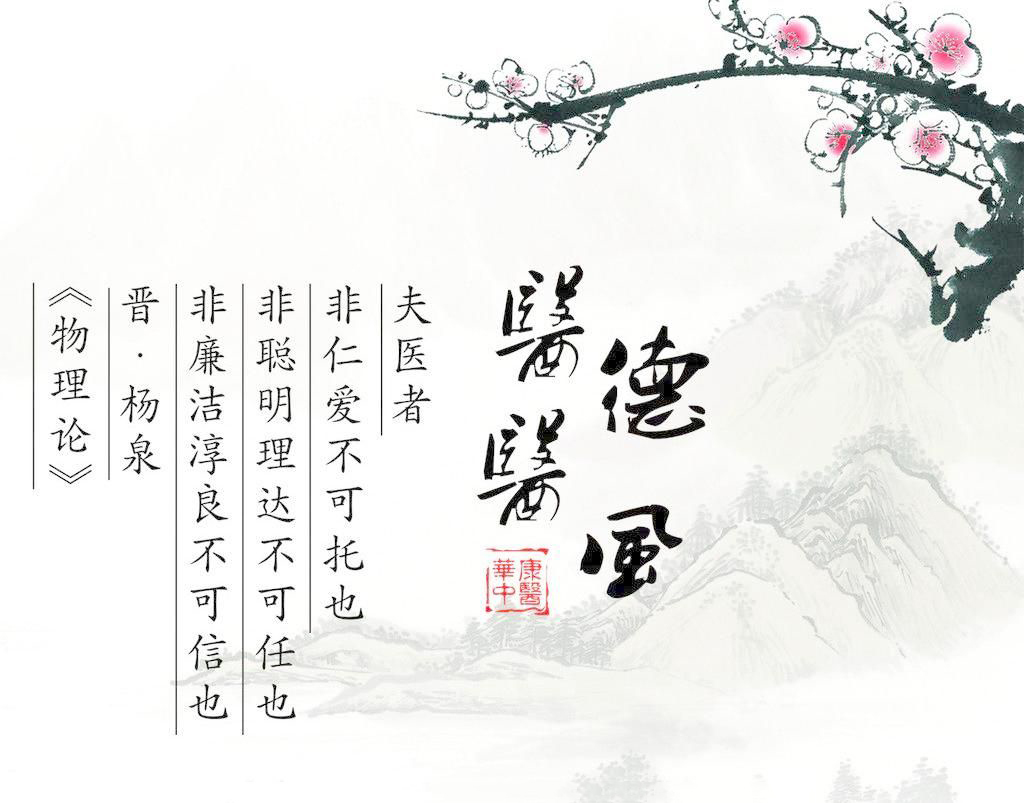 醫德
醫風
康醫
華中
夫医者
非仁爱不可托也
非聪明理达不可任也
非廉洁淳良不可信也
晋·杨泉
《物理论》